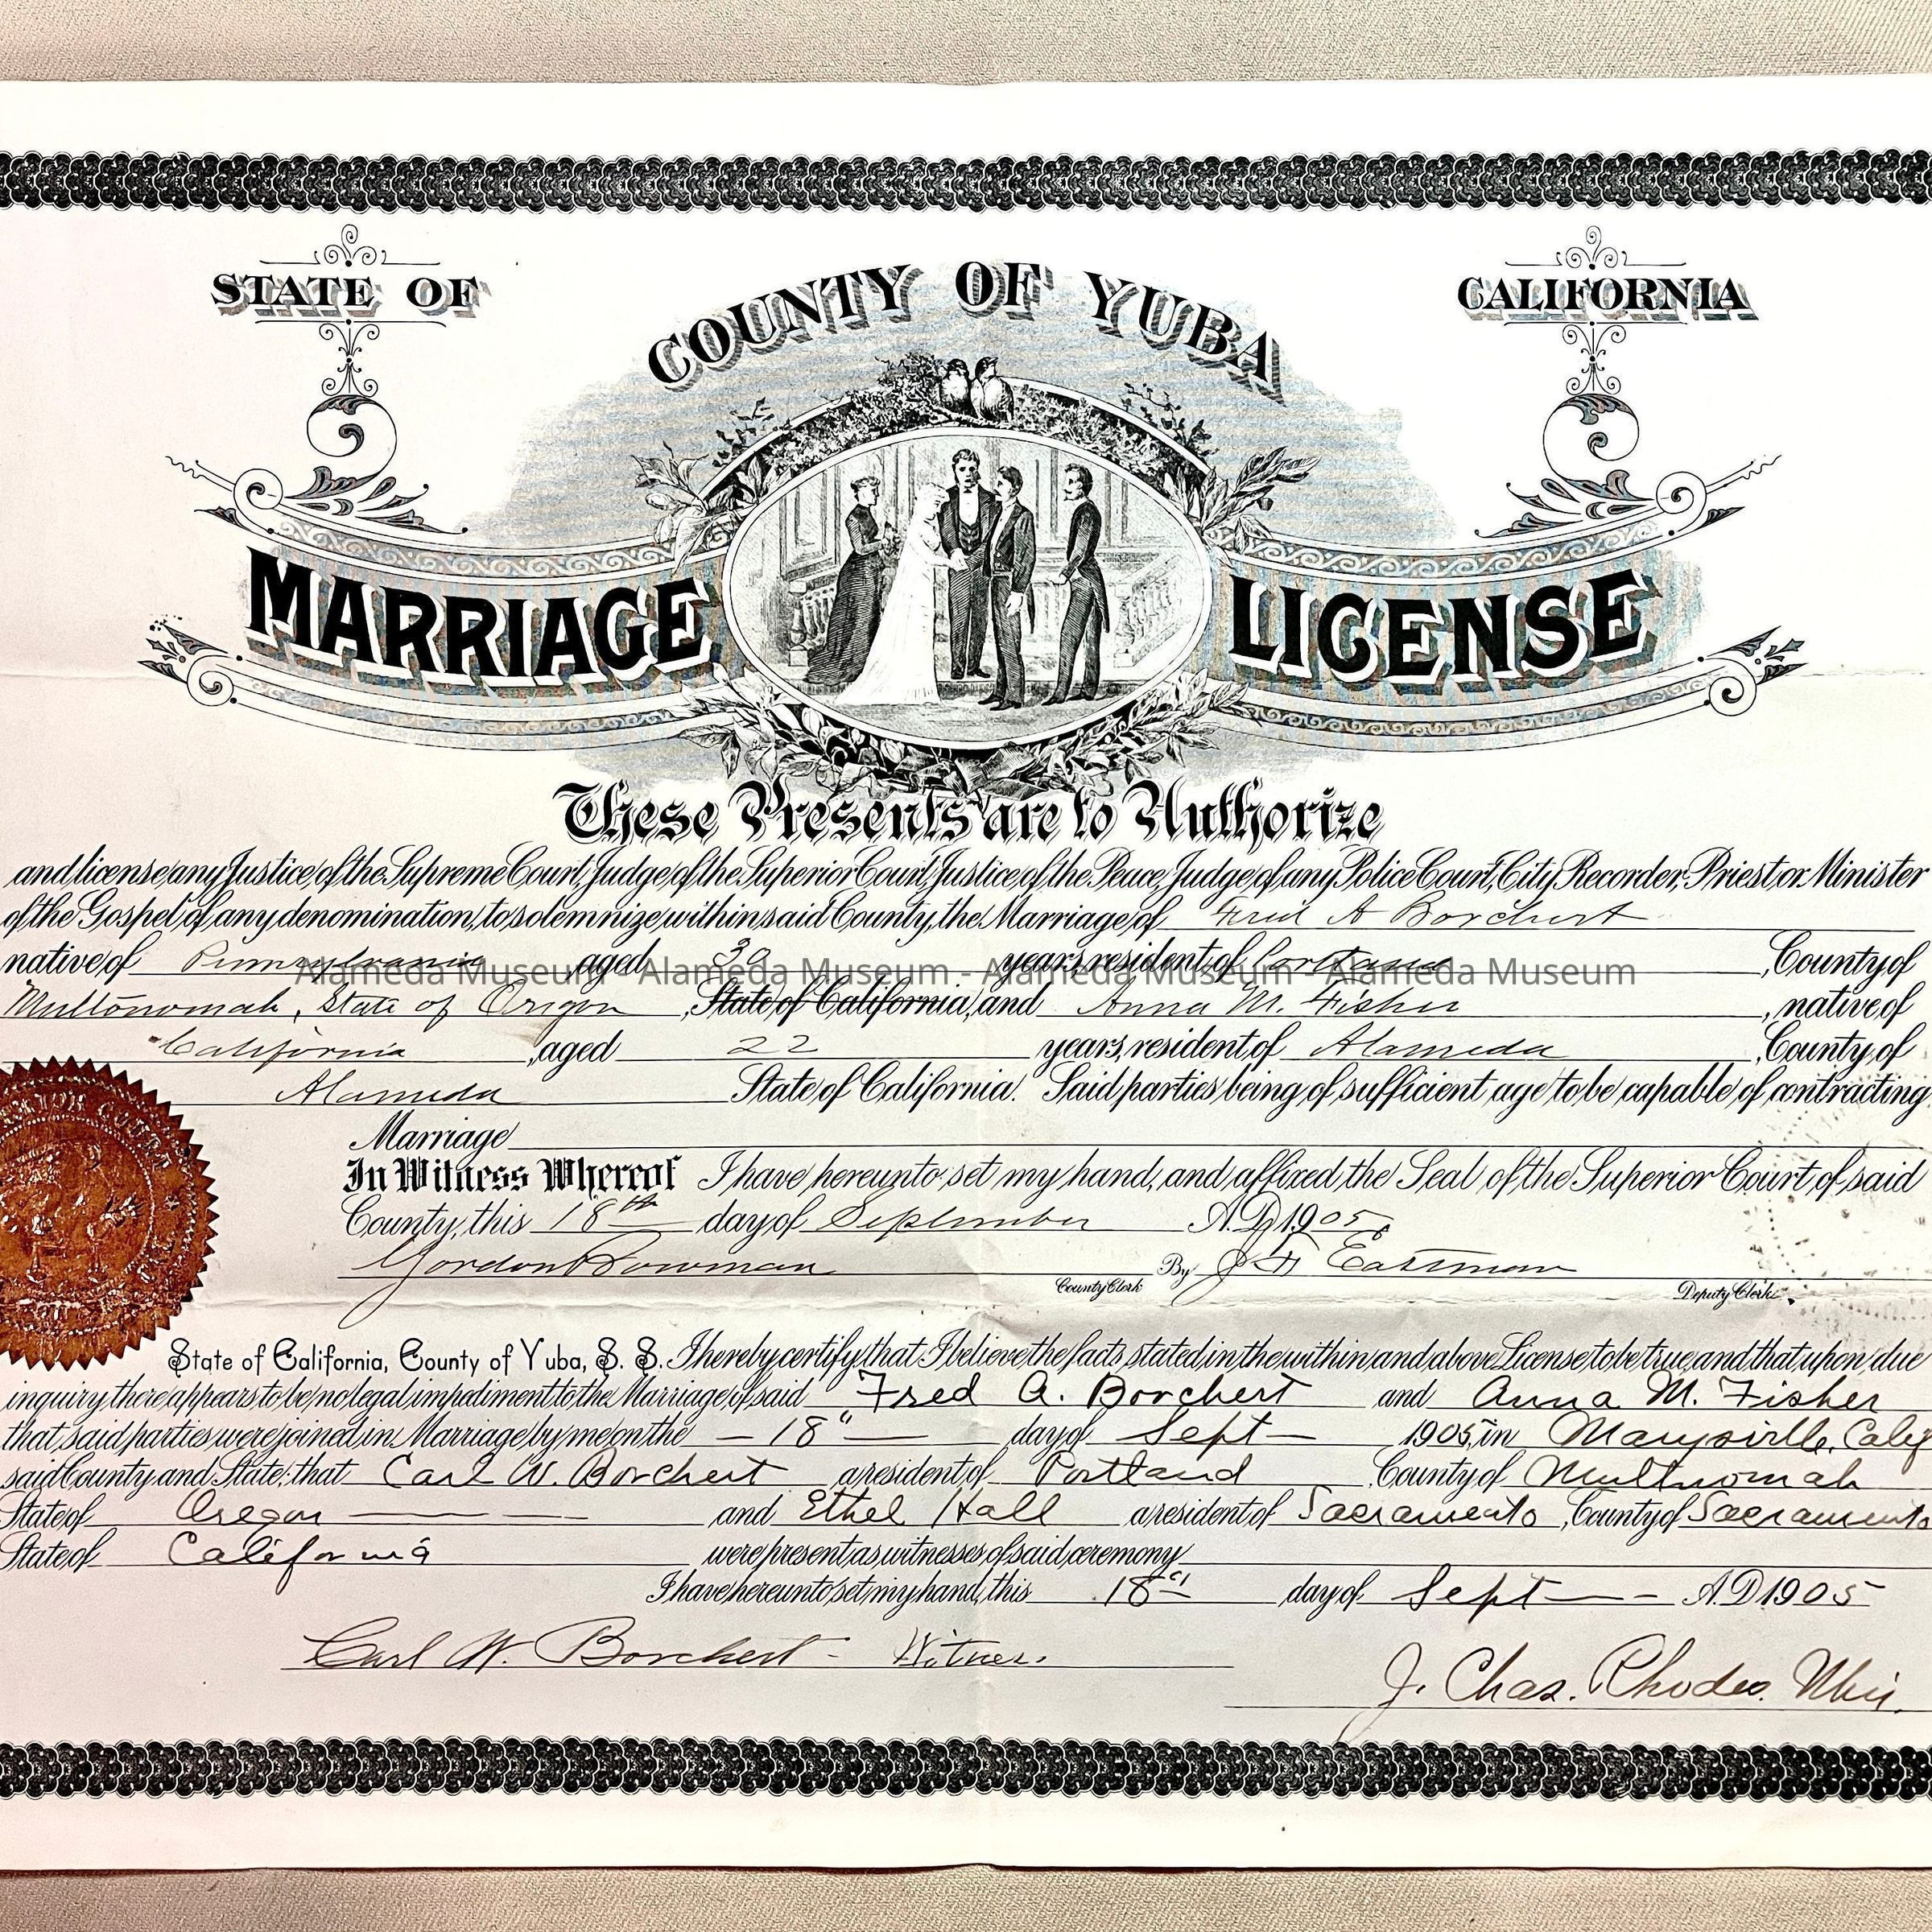 STATE OF
COUNTY OF YUBA
CALIFORNIA
MARRIAGE LICENSE
These Presents are to Authorize
and license any Justice of the Supreme Court, Judge of the Superior Court, Justice of the Peace, Judge of any Police Court, City Recorder, Priest or Minister
of the Gospel of any denomination, to solemnize within said County, the Marriage of Fred A Borchert
native of Pennsylvania aged 30 years, resident of Portland, County of
Alameda Museum - Alameda Museum - Alameda Museum - Alameda Museum
Multonomah, State of Oregon, State of California, and Anna M. Fisher, native of
California, aged 22 years, resident of Alameda, County of
Alameda State of California. Said parties being of sufficient age to be capable of contracting
Marriage
In Witness Whereof I have hereunto set my hand, and affixed the Seal of the Superior Court of said
County, this 18th day of September A.D. 1905.
Gordon Bowman County Clerk By J F Eastman Deputy Clerk.
State of California, County of Yuba, S. S. I hereby certify that I believe the facts stated in the within and above License to be true and that upon due
inquiry there appears to be no legal impediment to the Marriage of said Fred A. Borchert and Anna M. Fisher
that said parties were joined in Marriage by me on the - 18" - day of Sept - 1905, in Marysville, Calif
said County and State; that Carl W. Borchert a resident of Portland County of Multnomah
State of Oregon - - - and Ethel Hall a resident of Sacramento, County of Sacramento
State of California were present as witnesses of said ceremony
I have hereunto set my hand, this 18" day of Sept - - A.D. 1905
Carl W. Borchert - Witness.
J. Chas. Rhodes. Min.